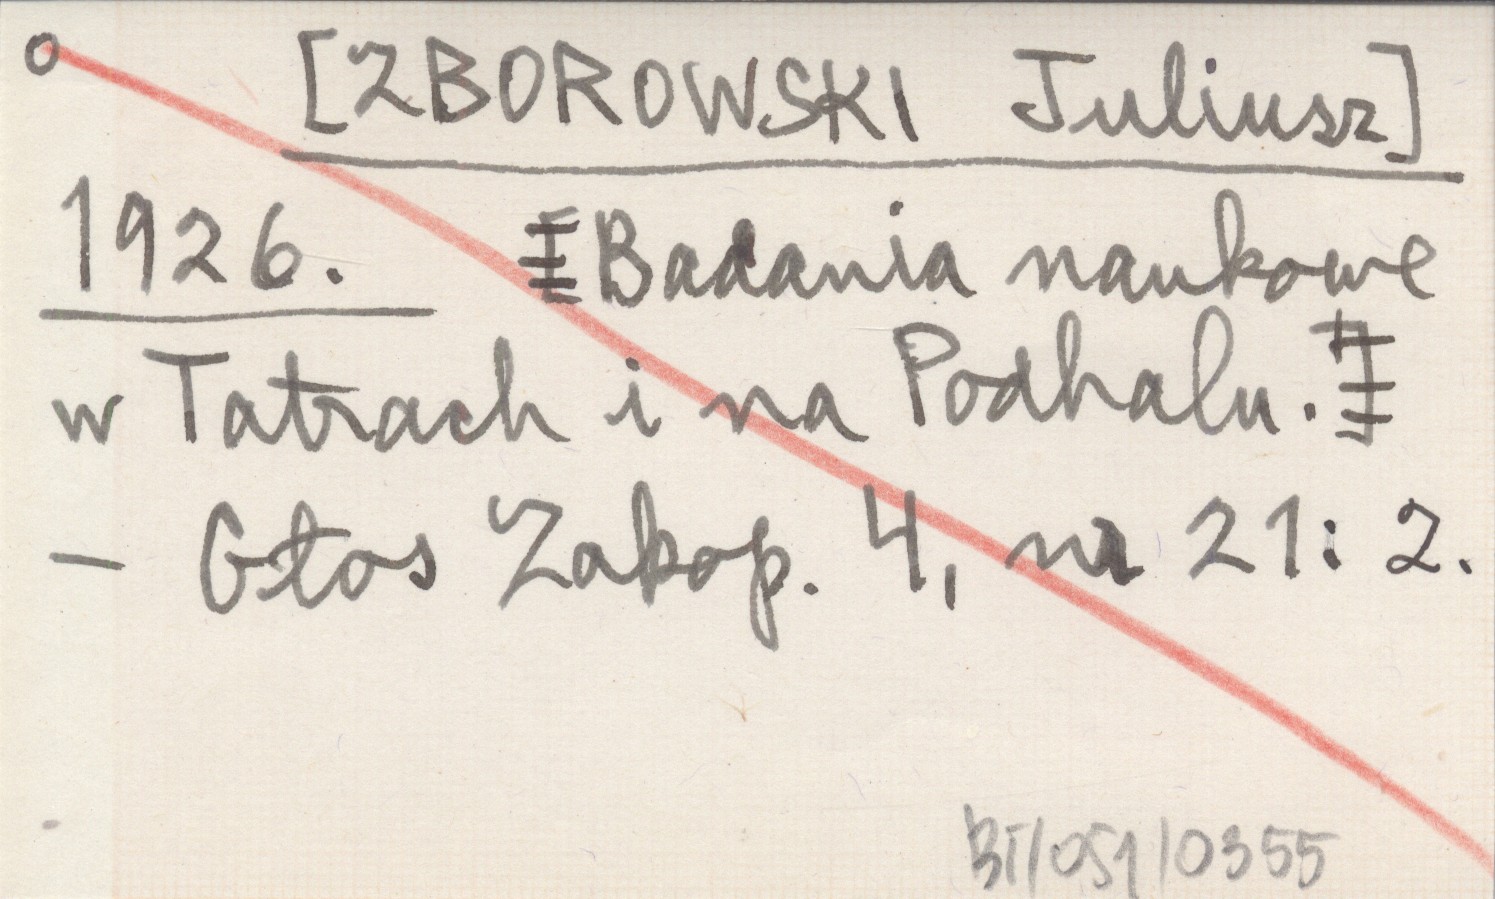 o [ZBOROWSKI Juliusz]
1926. Badania naukowe
w Tatrach i na Podhalu.
- Głos Zakop. 4, nr 21: 2.
BT/051/0355